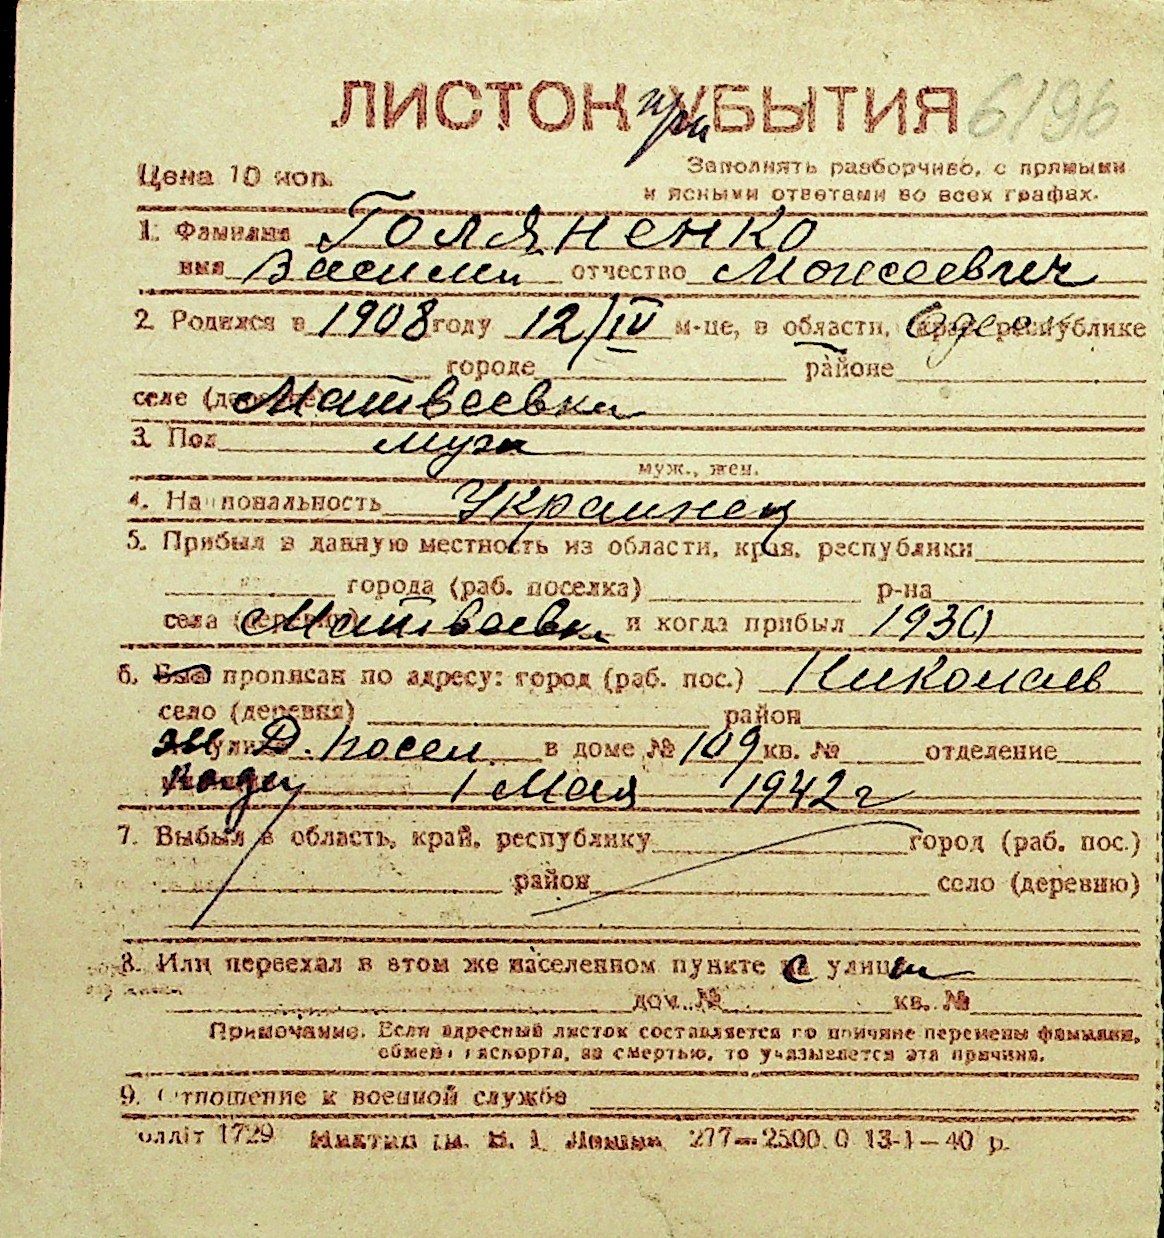 ЛИСТОК при УБЫТИЯ 6196
Цена 10 коп.
Заполнять разборчиво, с прямыми
и ясными ответами во всех графах.
1. Фамилия Голяненко
имя Василий отчество Моисеевич
2. Родился в 1908 году 12/IV м-це, в области, крае, республике Одесск
городе районе
селе (деревне) Матвеевка
3. Пол муж
муж., жен.
4. Национальность Украинец
5. Прибыл в данную местность из области, края, республики
города (раб. поселка) р-на
села (деревни) Матвеевки и когда прибыл 1930
6. Был прописан по адресу: город (раб. пос.) Николаев
село (деревня) район
улица Д. посел. в доме № 109 кв. № отделение
когда 1 Мая 1942 г
7. Выбыл в область, край, республику город (раб. пос.)
район село (деревню)
8. Или переехал в этом же населенном пункте с улицы
дом № кв. №
Примечание. Если адресный листок составляется по причине перемены фамилии,
обмена паспорта, за смертью, то указывается эта причина.
9. Отношение к военной службе
олліт 1729 277—2500.0 13-1—40 р.